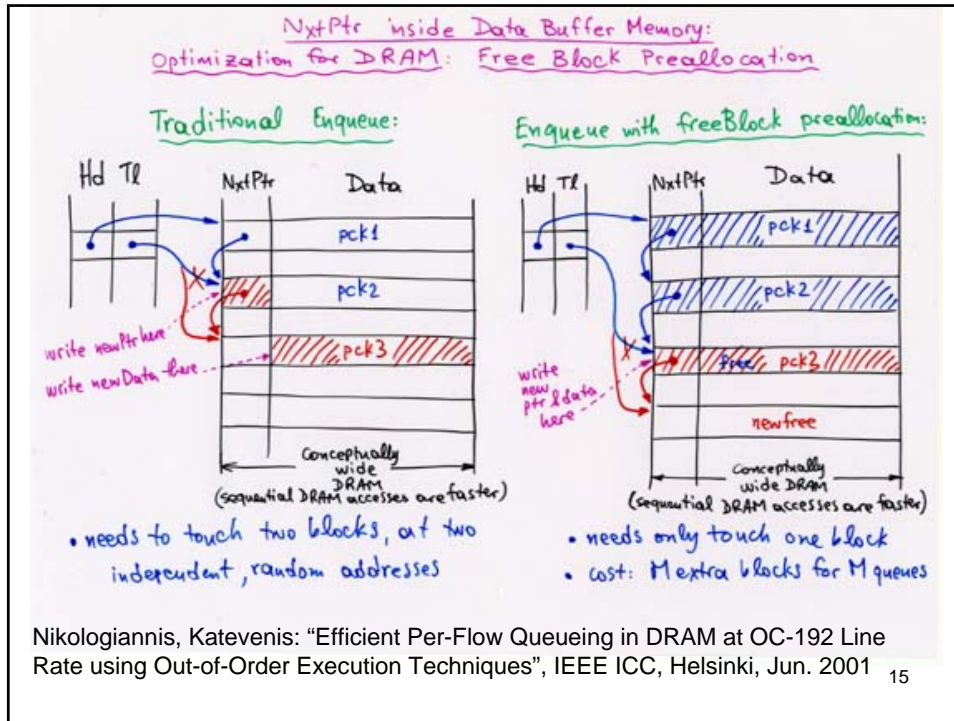 NxtPtr inside Data Buffer Memory:
Optimization for DRAM: Free Block Preallocation
Traditional Enqueue:
Hd Tl
NxtPtr
Data
pck1
pck2
pck3
write newPtr here
write newData here
Conceptually
wide
DRAM
(sequential DRAM accesses are faster)
• needs to touch two blocks, at two
independent, random addresses
Enqueue with freeBlock preallocation:
Hd Tl
NxtPtr
Data
pck1
pck2
free pck3
write
new
ptr & data
here
newfree
Conceptually
wide DRAM
(sequential DRAM accesses are faster)
• needs only touch one block
• cost: M extra blocks for M queues
Nikologiannis, Katevenis: “Efficient Per-Flow Queueing in DRAM at OC-192 Line
Rate using Out-of-Order Execution Techniques”, IEEE ICC, Helsinki, Jun. 2001
15